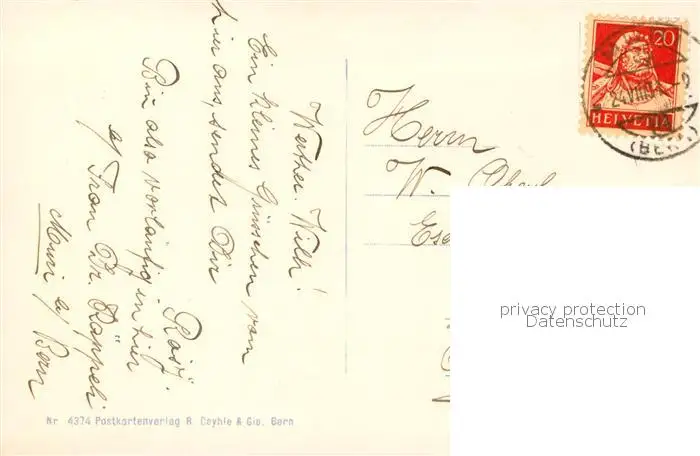 Werther Willi!
Ein kleines Grüsschen vom
hier aus, sendet Dir
Rösy.
Bin also vorläufig in hier
b/ Frau Dr. Käppeli
Muri b/ Bern
Nr 4374 Postkartenverlag R Deyhle & Cie. Bern
Herrn
W.
20
HELVETIA
24.VIII
(BERN)
privacy protection
Datenschutz